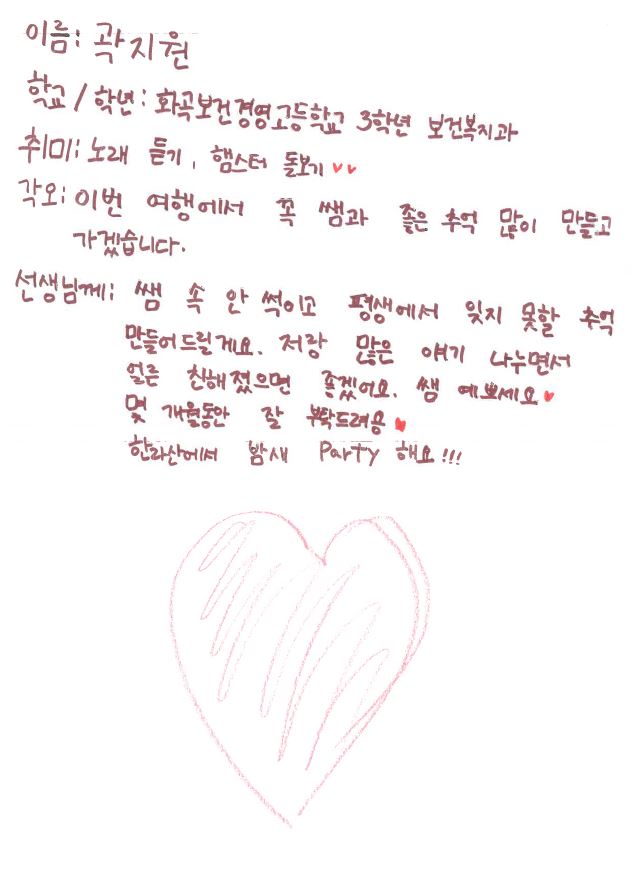 이름: 곽지원
학교/학년: 화곡보건경영고등학교 3학년 보건복지과
취미: 노래 듣기, 햄스터 돌보기♥♥
각오: 이번 여행에서 꼭 쌤과 좋은 추억 많이 만들고
가겠습니다.
선생님께: 쌤 속 안 썩이고 평생에서 잊지 못할 추억
만들어드릴게요. 저랑 많은 얘기 나누면서
얼른 친해졌으면 좋겠어요. 쌤 예쁘세요♥
몇 개월동안 잘 부탁드려용♥
한라산에서 밤새 Party 해요!!!